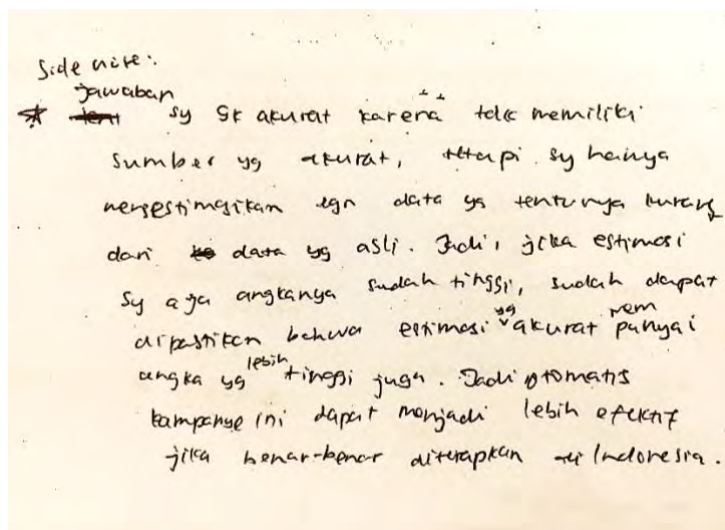 Side note:
jawaban
sy gk akurat karena tdk memiliki
sumber yg akurat, tetapi sy hainya
mengestimasikan dgn data yg tentunya kurang
dari data yg asli. Jadi, jika estimasi
sy aja angkanya sudah tinggi, sudah dapat
dipastikan bahwa estimasi yg akurat mempunyai
angka yg lebih tinggi juga. Jadi otomatis
kampanye ini dapat menjadi lebih efektif
jika benar-benar diterapkan di Indonesia.